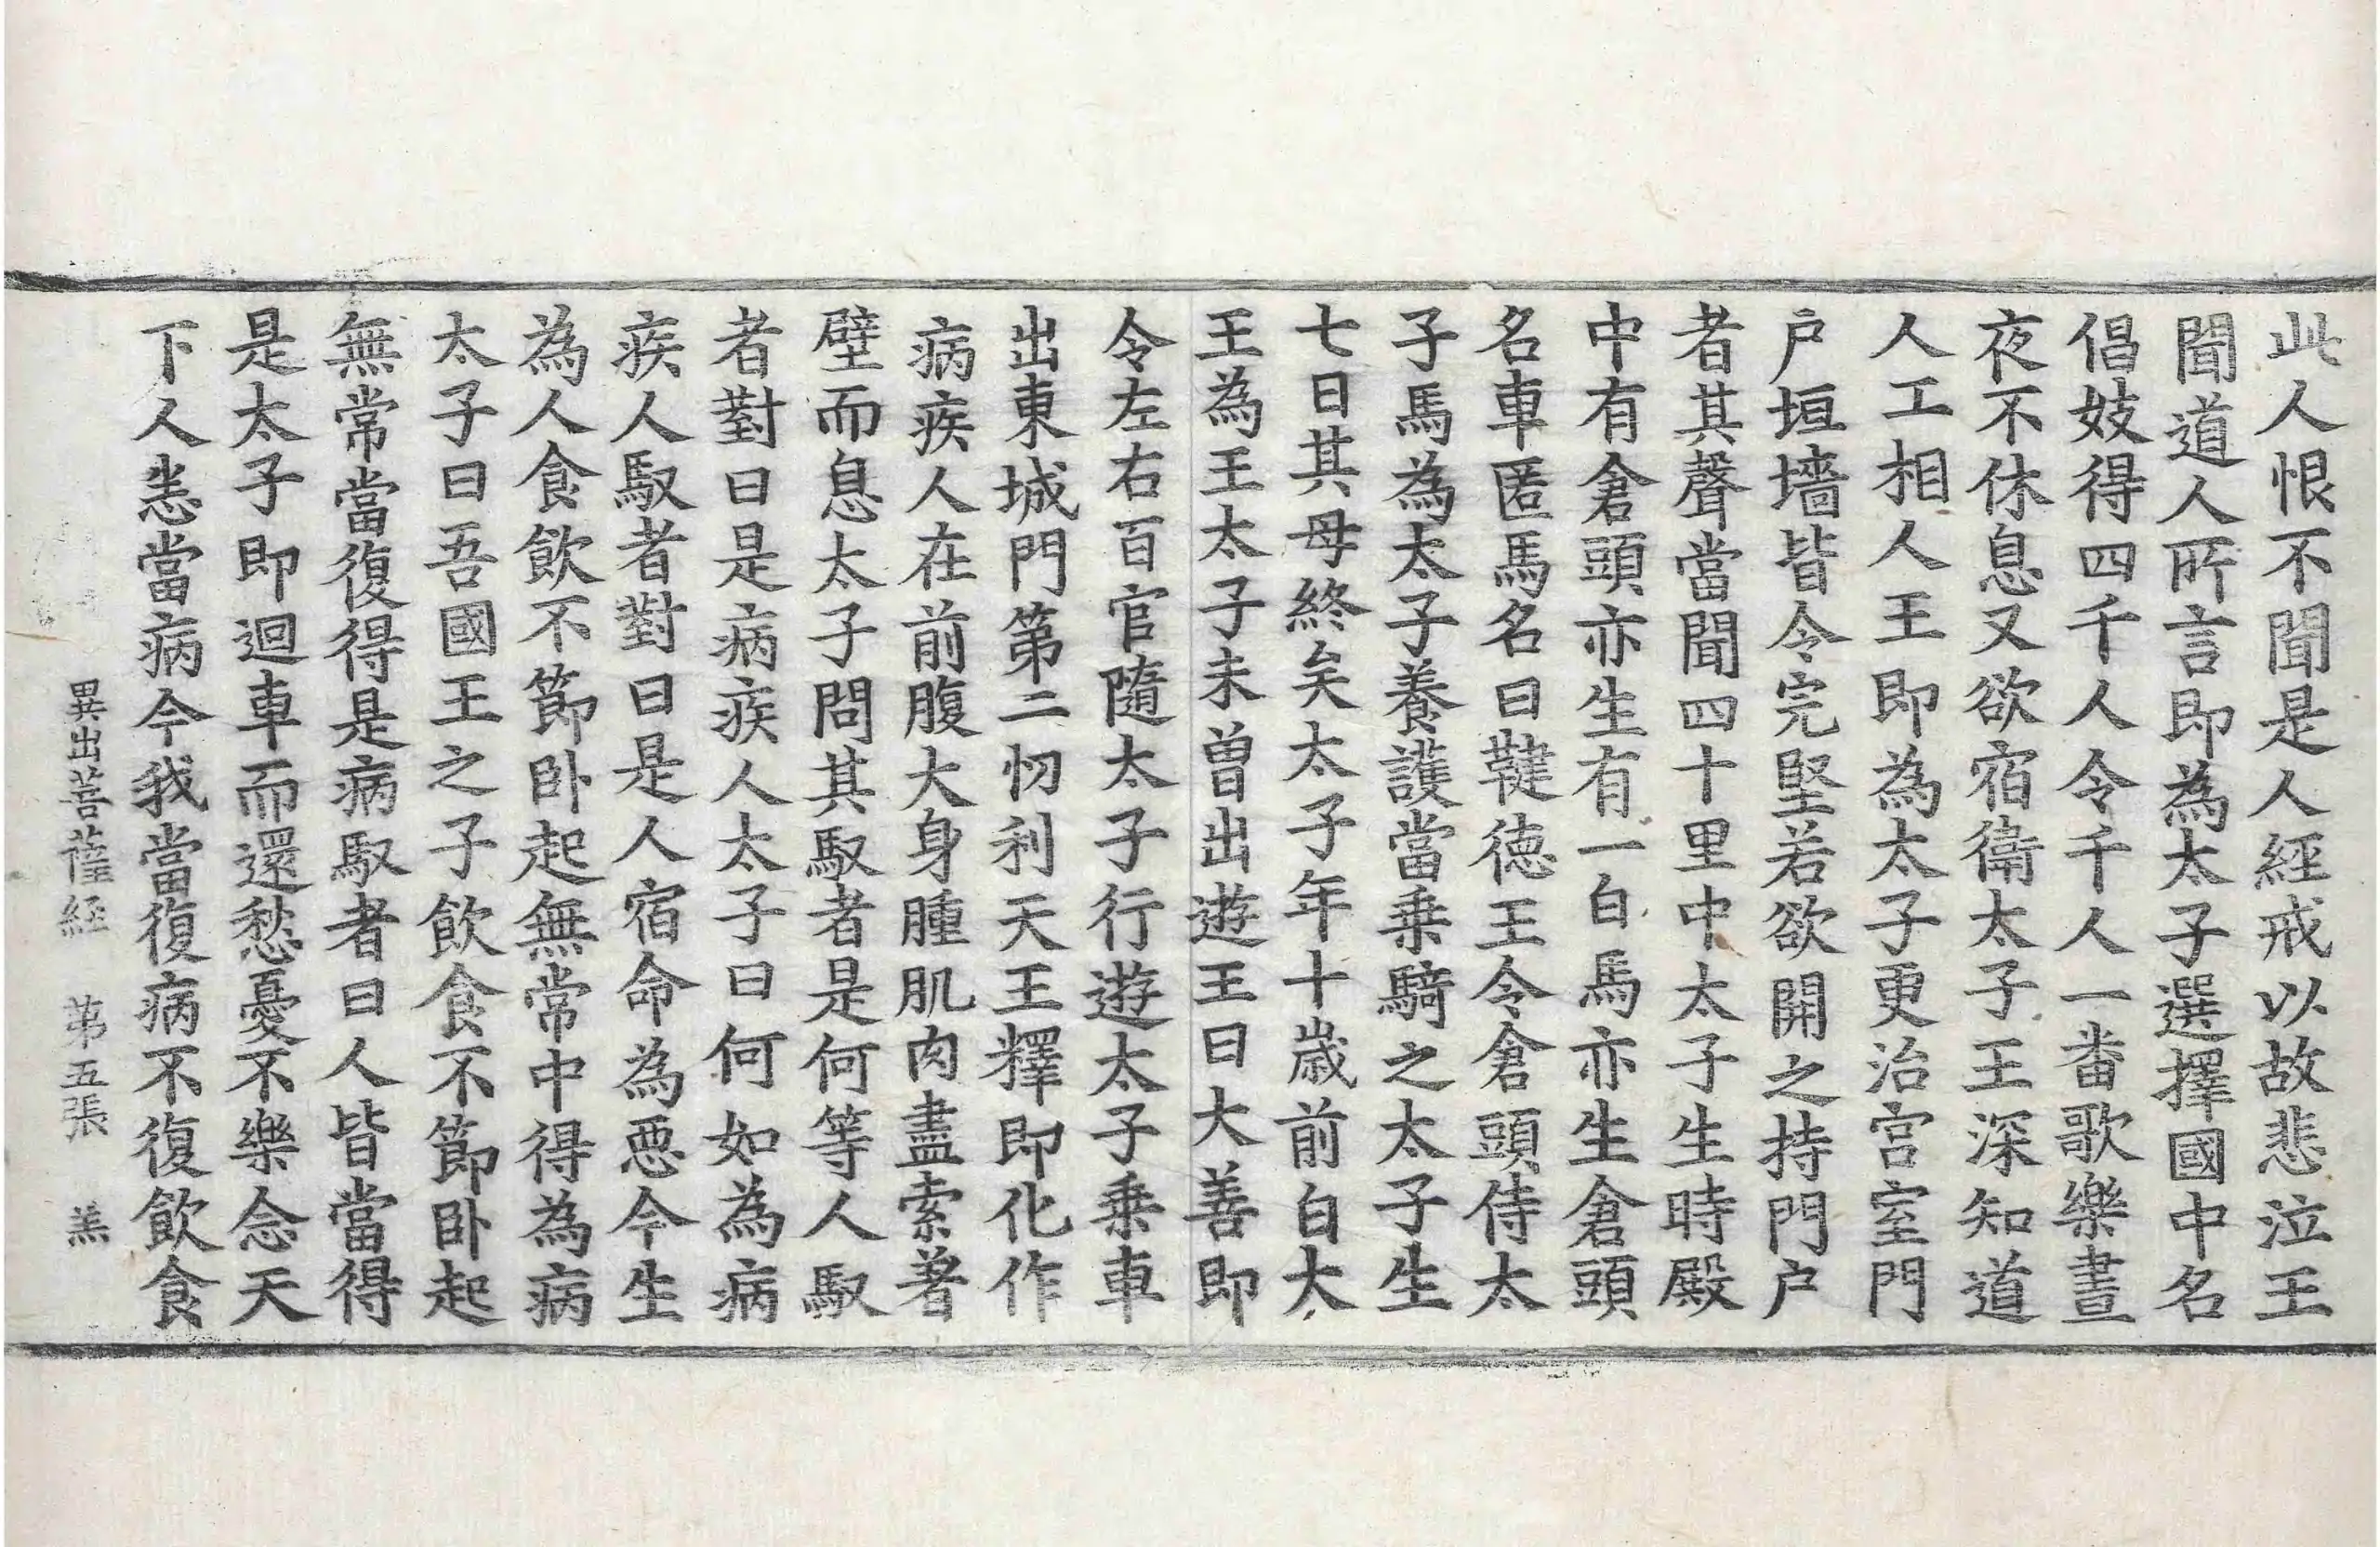 此人恨不聞是人經戒以故悲泣王
聞道人所言即為太子選擇國中名
倡妓得四千人令千人一畨歌樂晝
夜不休息又欲宿衛太子王深知道
人工相人王即為太子更治宮室門
戶垣墻皆令完堅若欲開之持門戶
者其聲當聞四十里中太子生時殿
中有倉頭亦生有一白馬亦生倉頭
名車匿馬名曰鞬德王令倉頭侍太
子馬為太子養護當乗騎之太子生
七日其母終矣太子年十歲前白大
王為王太子未曽出遊王曰大善即
令左右百官隨太子行遊太子乗車
出東城門第二忉利天王釋即化作
病疾人在前腹大身腫肌肉盡索著
壁而息太子問其馭者是何等人馭
者對曰是病疾人太子曰何如為病
疾人馭者對曰是人宿命為惡今生
為人食飲不節卧起無常中得為病
太子曰吾國王之子飲食不節卧起
無常當復得是病馭者曰人皆當得
是太子即迴車而還愁憂不樂念天
下人恙當病今我當復病不復飲食
異出菩薩経 第五張 羔